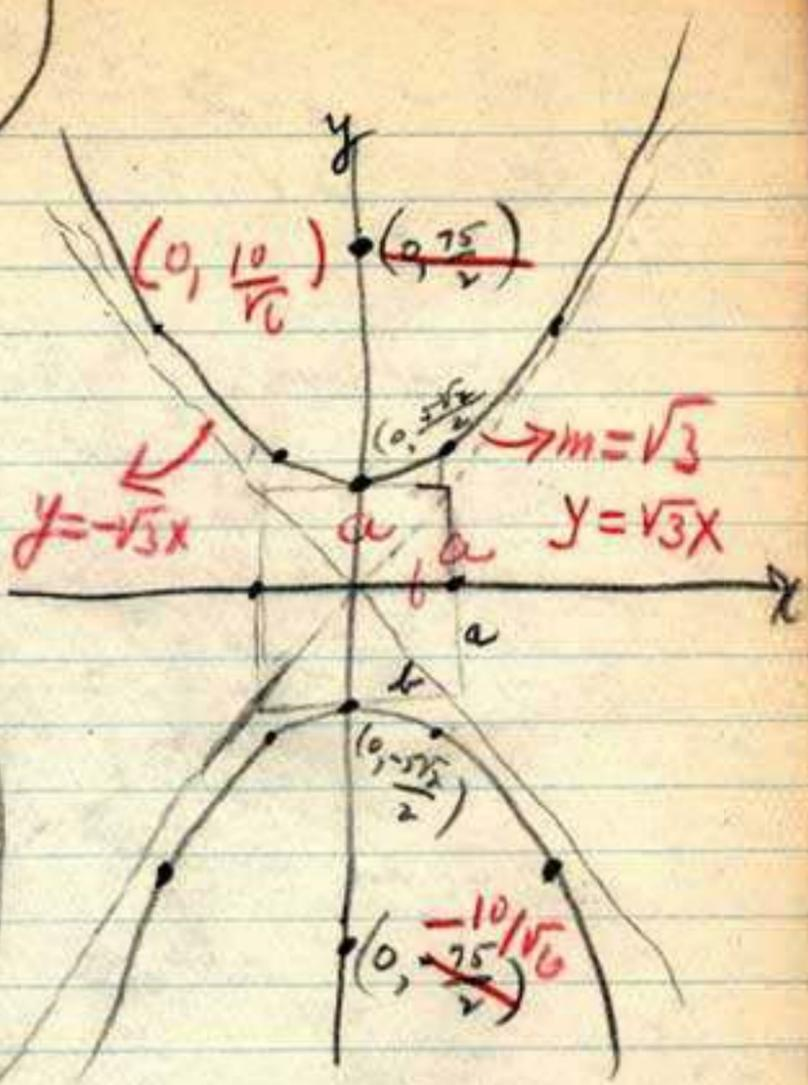 y
(0, 10/√6)
(0, 75/2)
(0, 5√2/2)
m = √3
y = -√3x
a
a
y = √3x
b
x
a
b
(0, -5√2/2)
-10/√6
(0, -75/2)